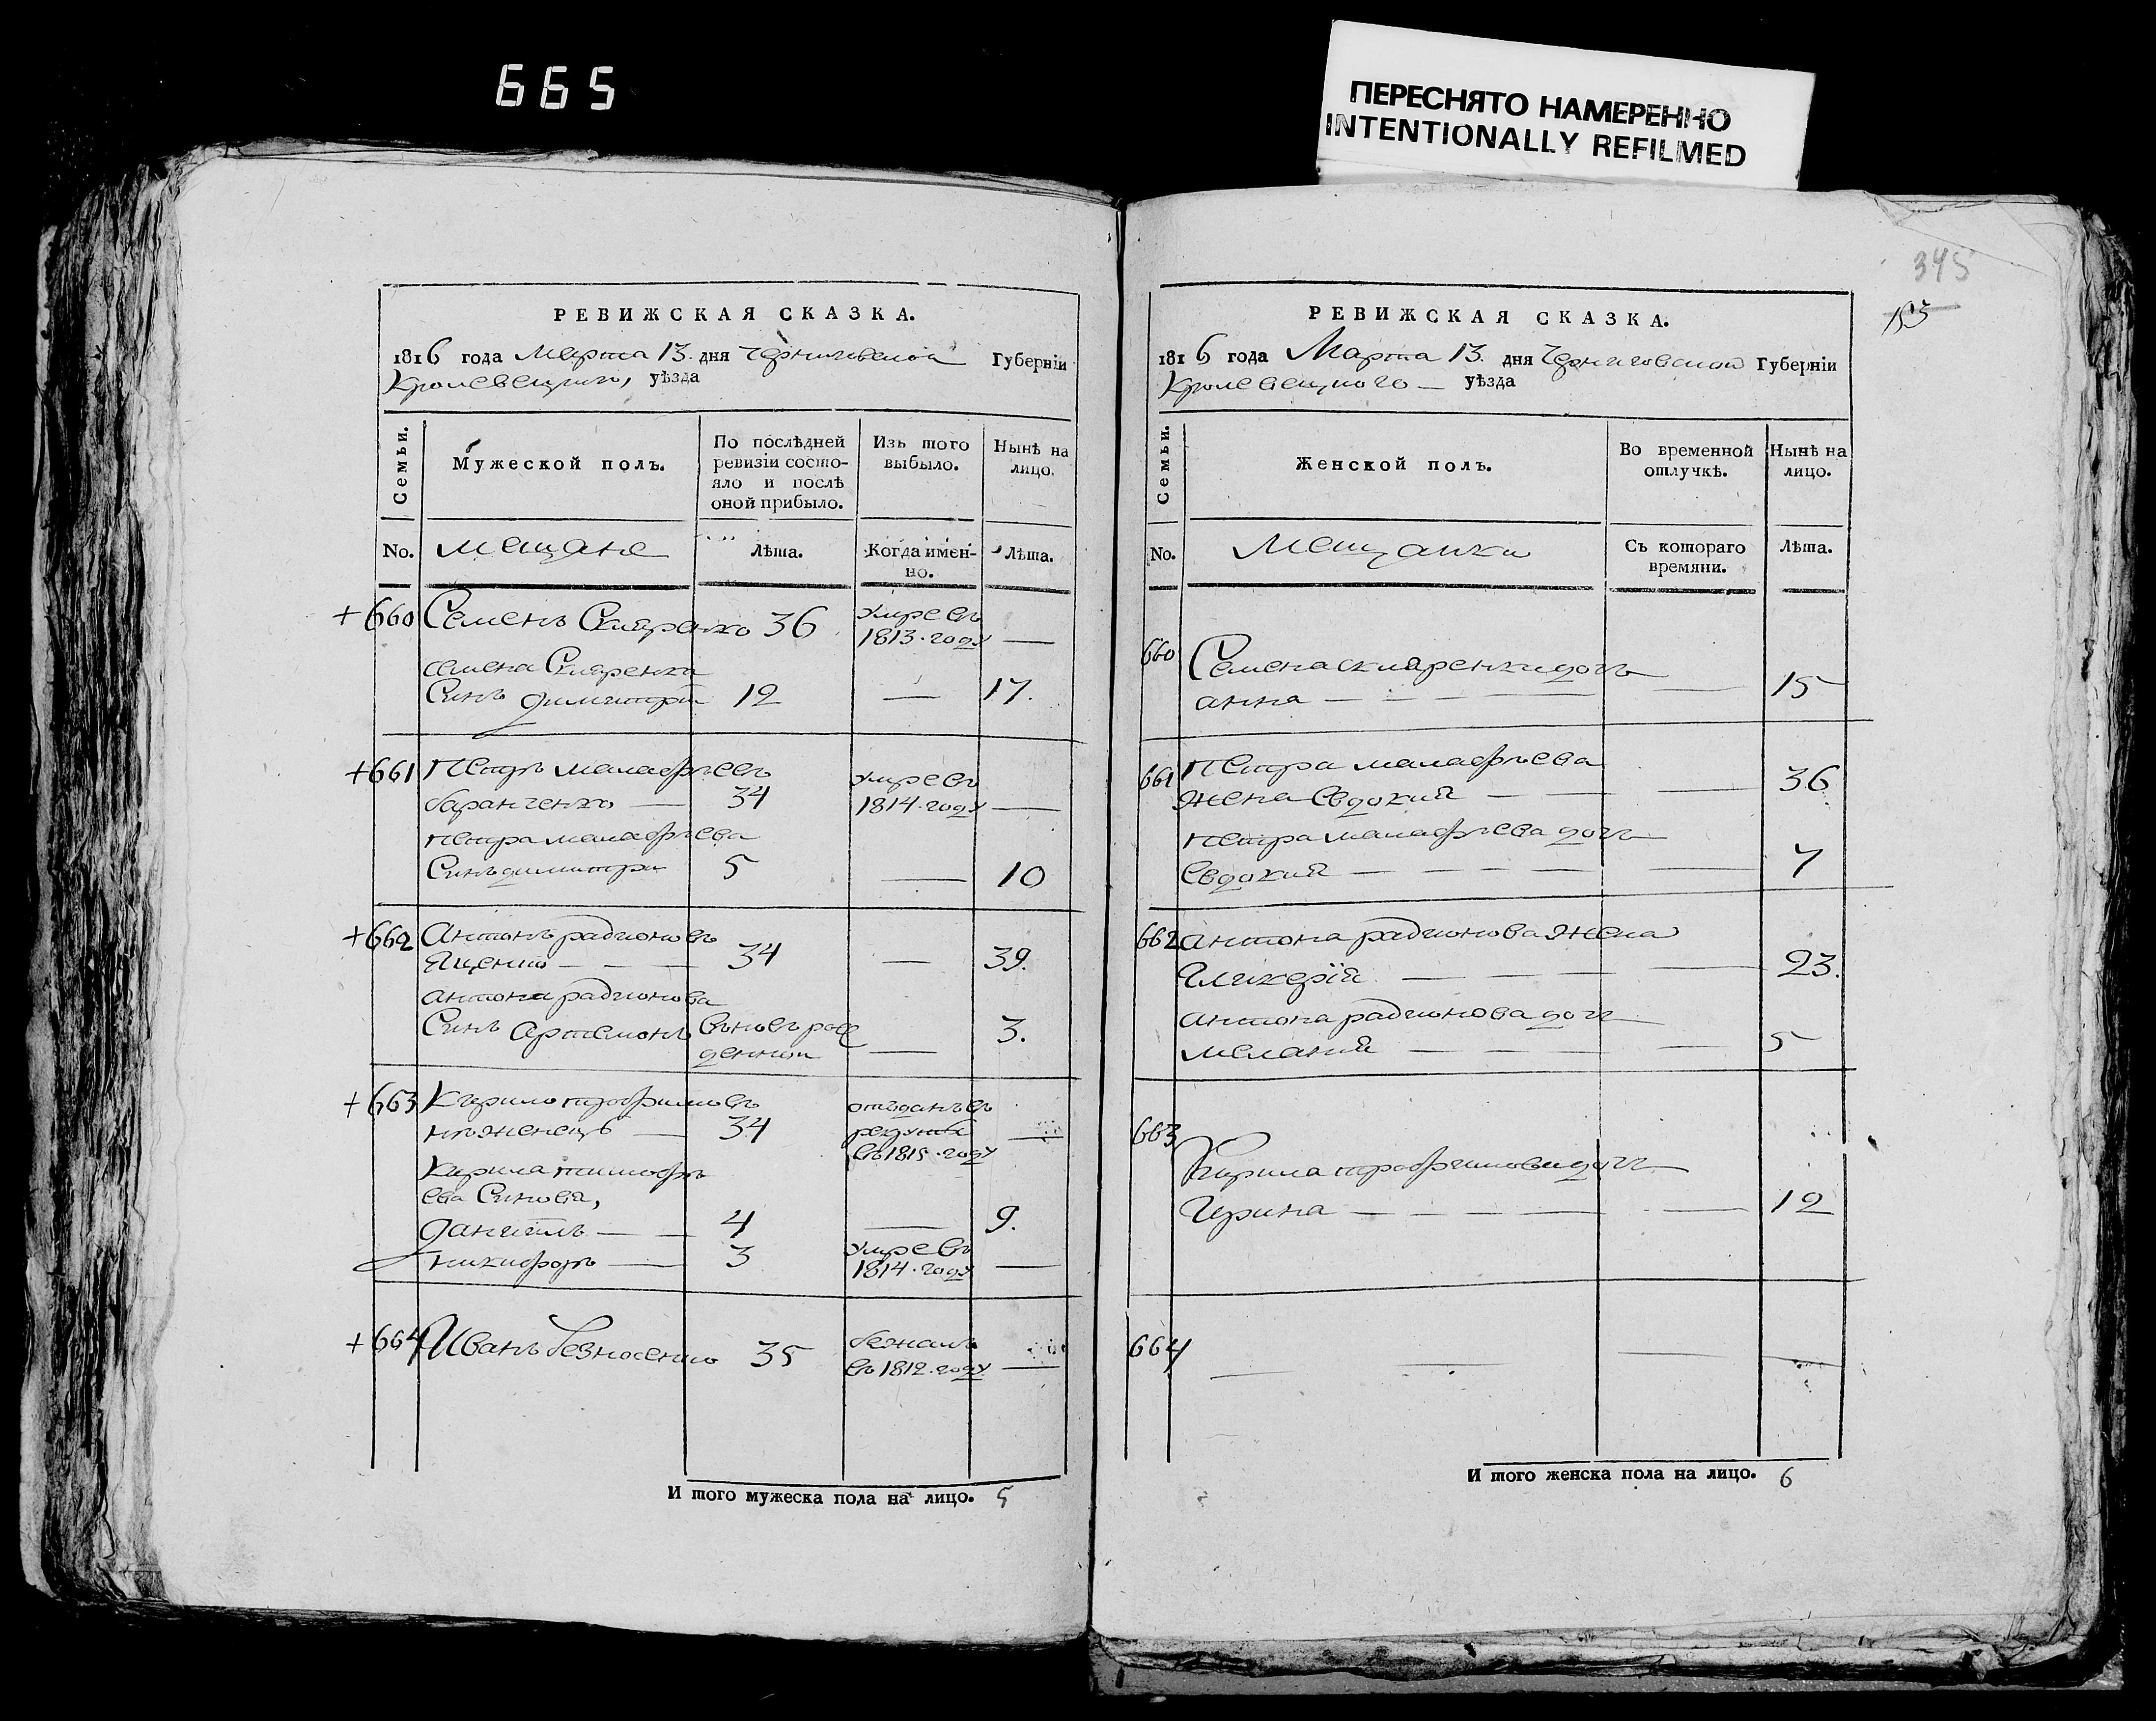 665
ПЕРЕСНЯТО НАМЕРЕННО
INTENTIONALLY REFILMED
РЕВИЖСКАЯ СКАЗКА.
1816 года Марта 13. дня Черниговской Губерніи
Кролевецкого, уѣзда
Семьи.
Мужеской полъ.
По послѣдней ревизіи состо-
яло и послѣ
оной прибыло.
Изъ того
выбыло.
Нынѣ на
лицо.
No.
Мещане
Лѣта.
Когда имен-
но.
Лѣта.
+660 Семенъ Скляренко 36 умре въ
1813. году —
семена Скляренка
Синъ Димитрій 12 — 17.
+661 Петръ малафѣевъ умре въ
баранченко — 34 1814. году —
петра малафѣева
Синъ димитрій 5 — 10
+662 Антонъ радионовъ
Яценко — — 34 — 39.
антона радионова
Синъ Артемонъ вновь рож
денний — 3.
+663 Кирило трофимовъ отъданъ въ
нѣженецъ — 34 рекруты —
въ 1815. году
Кирила тимофѣ
ева Синовя,
данiилъ — — 4 — 9.
никифоръ — 3 умре въ
1814. году —
+664 Иванъ безносенко 35 бежалъ
въ 1812. году —
И того мужеска пола на лицо. 5
345
153
РЕВИЖСКАЯ СКАЗКА.
1816 года Марта 13. дня Черниговской Губерніи
Кролевецкого — уѣзда
Семьи.
Женской полъ.
Во временной
отлучкѣ.
Нынѣ на
лицо.
No.
Мещанки
Съ котораго
времяни.
Лѣта.
660 Семена скляренки дочь
анна — — — — — 15
661 Петра малафѣева
жена Евдокия — — — 36
петра малафѣева дочь
Евдокия — — — — — 7
662 антона радионова жена
Гликерiя — — — — 23.
антона радионова дочь
мелания — — — — 5
663
Кирила трофимова дочь
Ирина — — — — — 12
664 — — — —
И того женска пола на лицо. 6